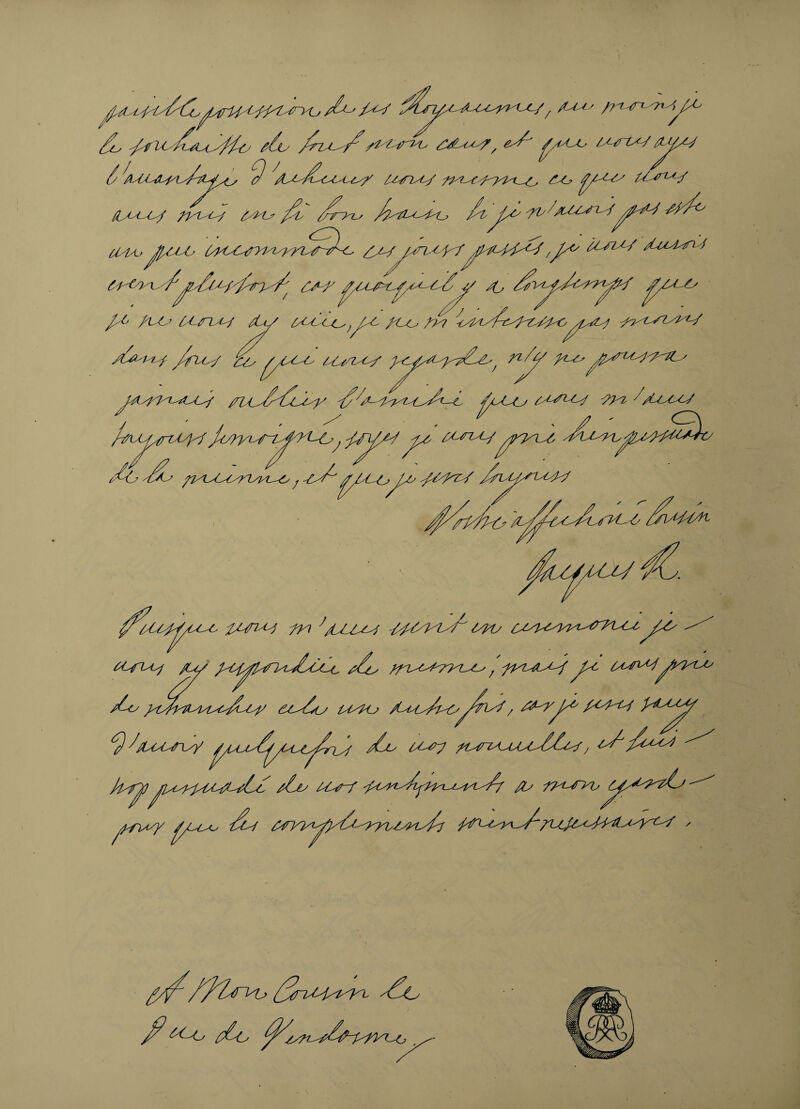 paisible possession de ses Royaumes, au moins je
le souhaitte de tout mon cœur, et que vous ayes
l'auantage d'acheuer vous mesme ce que vous
aues mis en si bon train si je n'auois pas esté
un peu incommodé ces jours passés, je vous aurois
escrit plustost, car quoiqu'il y a longtemps que
je ne vous ay veüe, je ne m'interesse pas moins
dans tous ce qui vous regarde, n'y ne pourra
jamais oublier l'amitié que vous m'aues
tousjours temoignée, soyes je vous prie bien persuadé
de la mienne, et que je seres tousjours
Vostre affectioné Cousin
Jacques R.
Puisque vous m'aues escrit en ceremonie je
vous ay respondüe de mesme, mais je vous prie
de retrancher cela une autre fois, car je seres rauy
d'auoir quelquefois de vos nouuelles, et suis
trop persuadé de vos sentiments a mon egard
pour que les complements soient nesessaires.
et Mon Cousin le
Duc de Vendosme.